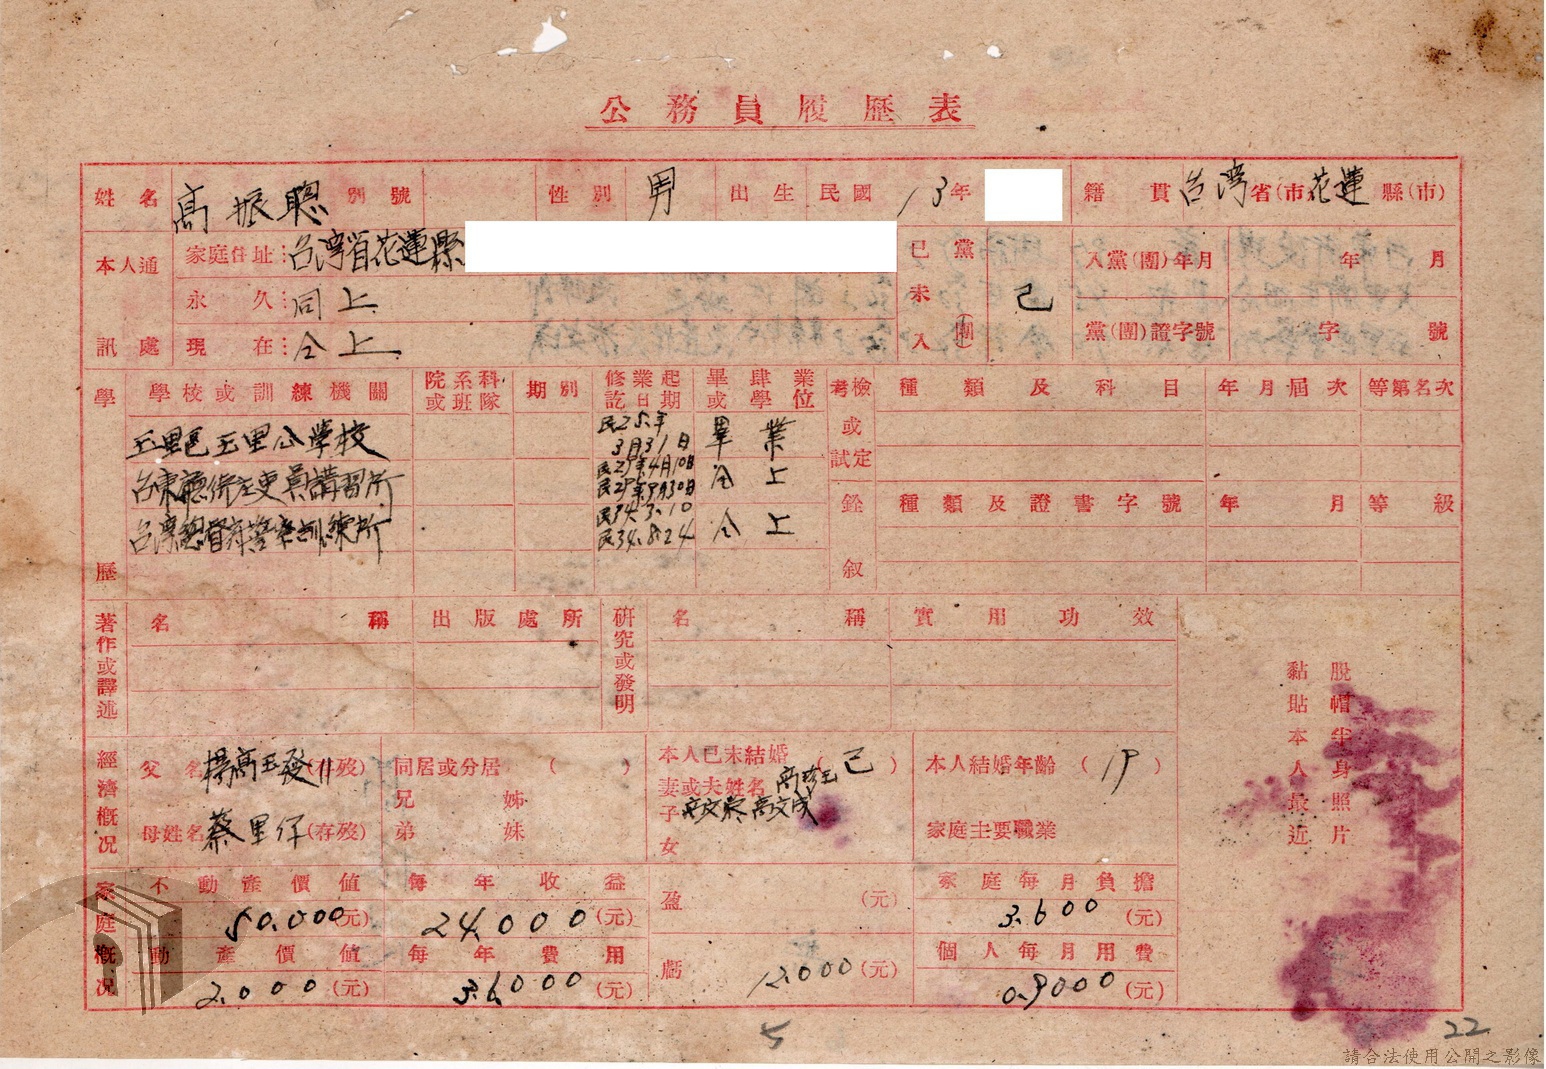 公務員履歷表
姓名 高振聰 別號 性別 男 出生 民國 13年 籍貫 台灣省(市)花蓮縣(市)
本人通訊處 家庭住址：台灣省花蓮縣
永久：同上
現在：仝上
已未入黨(團) 已 入黨(團)年月 年 月
黨(團)證字號 字 號
學歷 學校或訓練機關 院系科或班隊 期別 修業起訖日期 畢肄業或學位
玉里公學校 民25年3月31日 畢業
民29年4月10日 民29年9月30日 仝上
台灣總督府警察訓練所 民34.3.10 民34.8.24 仝上
考檢或試定 種類及科目 年月屆次 等第名次
銓敘 種類及證書字號 年月 等級
著作或譯述 名稱 出版處所 研究或發明 名稱 實用功效
脫帽半身照片
黏貼本人最近
經濟概況 父名 楊高玉發 (存歿) 同居或分居 ( ) 本人已未結婚 (已) 本人結婚年齡 (19)
兄弟 姊妹 妻或夫姓名 高珍玉
子女 高文榮 高文成
母姓名 蔡里仔 (存歿) 家庭主要職業
家庭概況 不動產價值 50.000(元) 每年收益 24.000(元) 盈 (元) 家庭每月負擔 3.600(元)
動產價值 2.000(元) 每年費用 36.000(元) 虧 12.000(元) 個人每月用費 0.9000(元)
5
22
請合法使用公開之影像